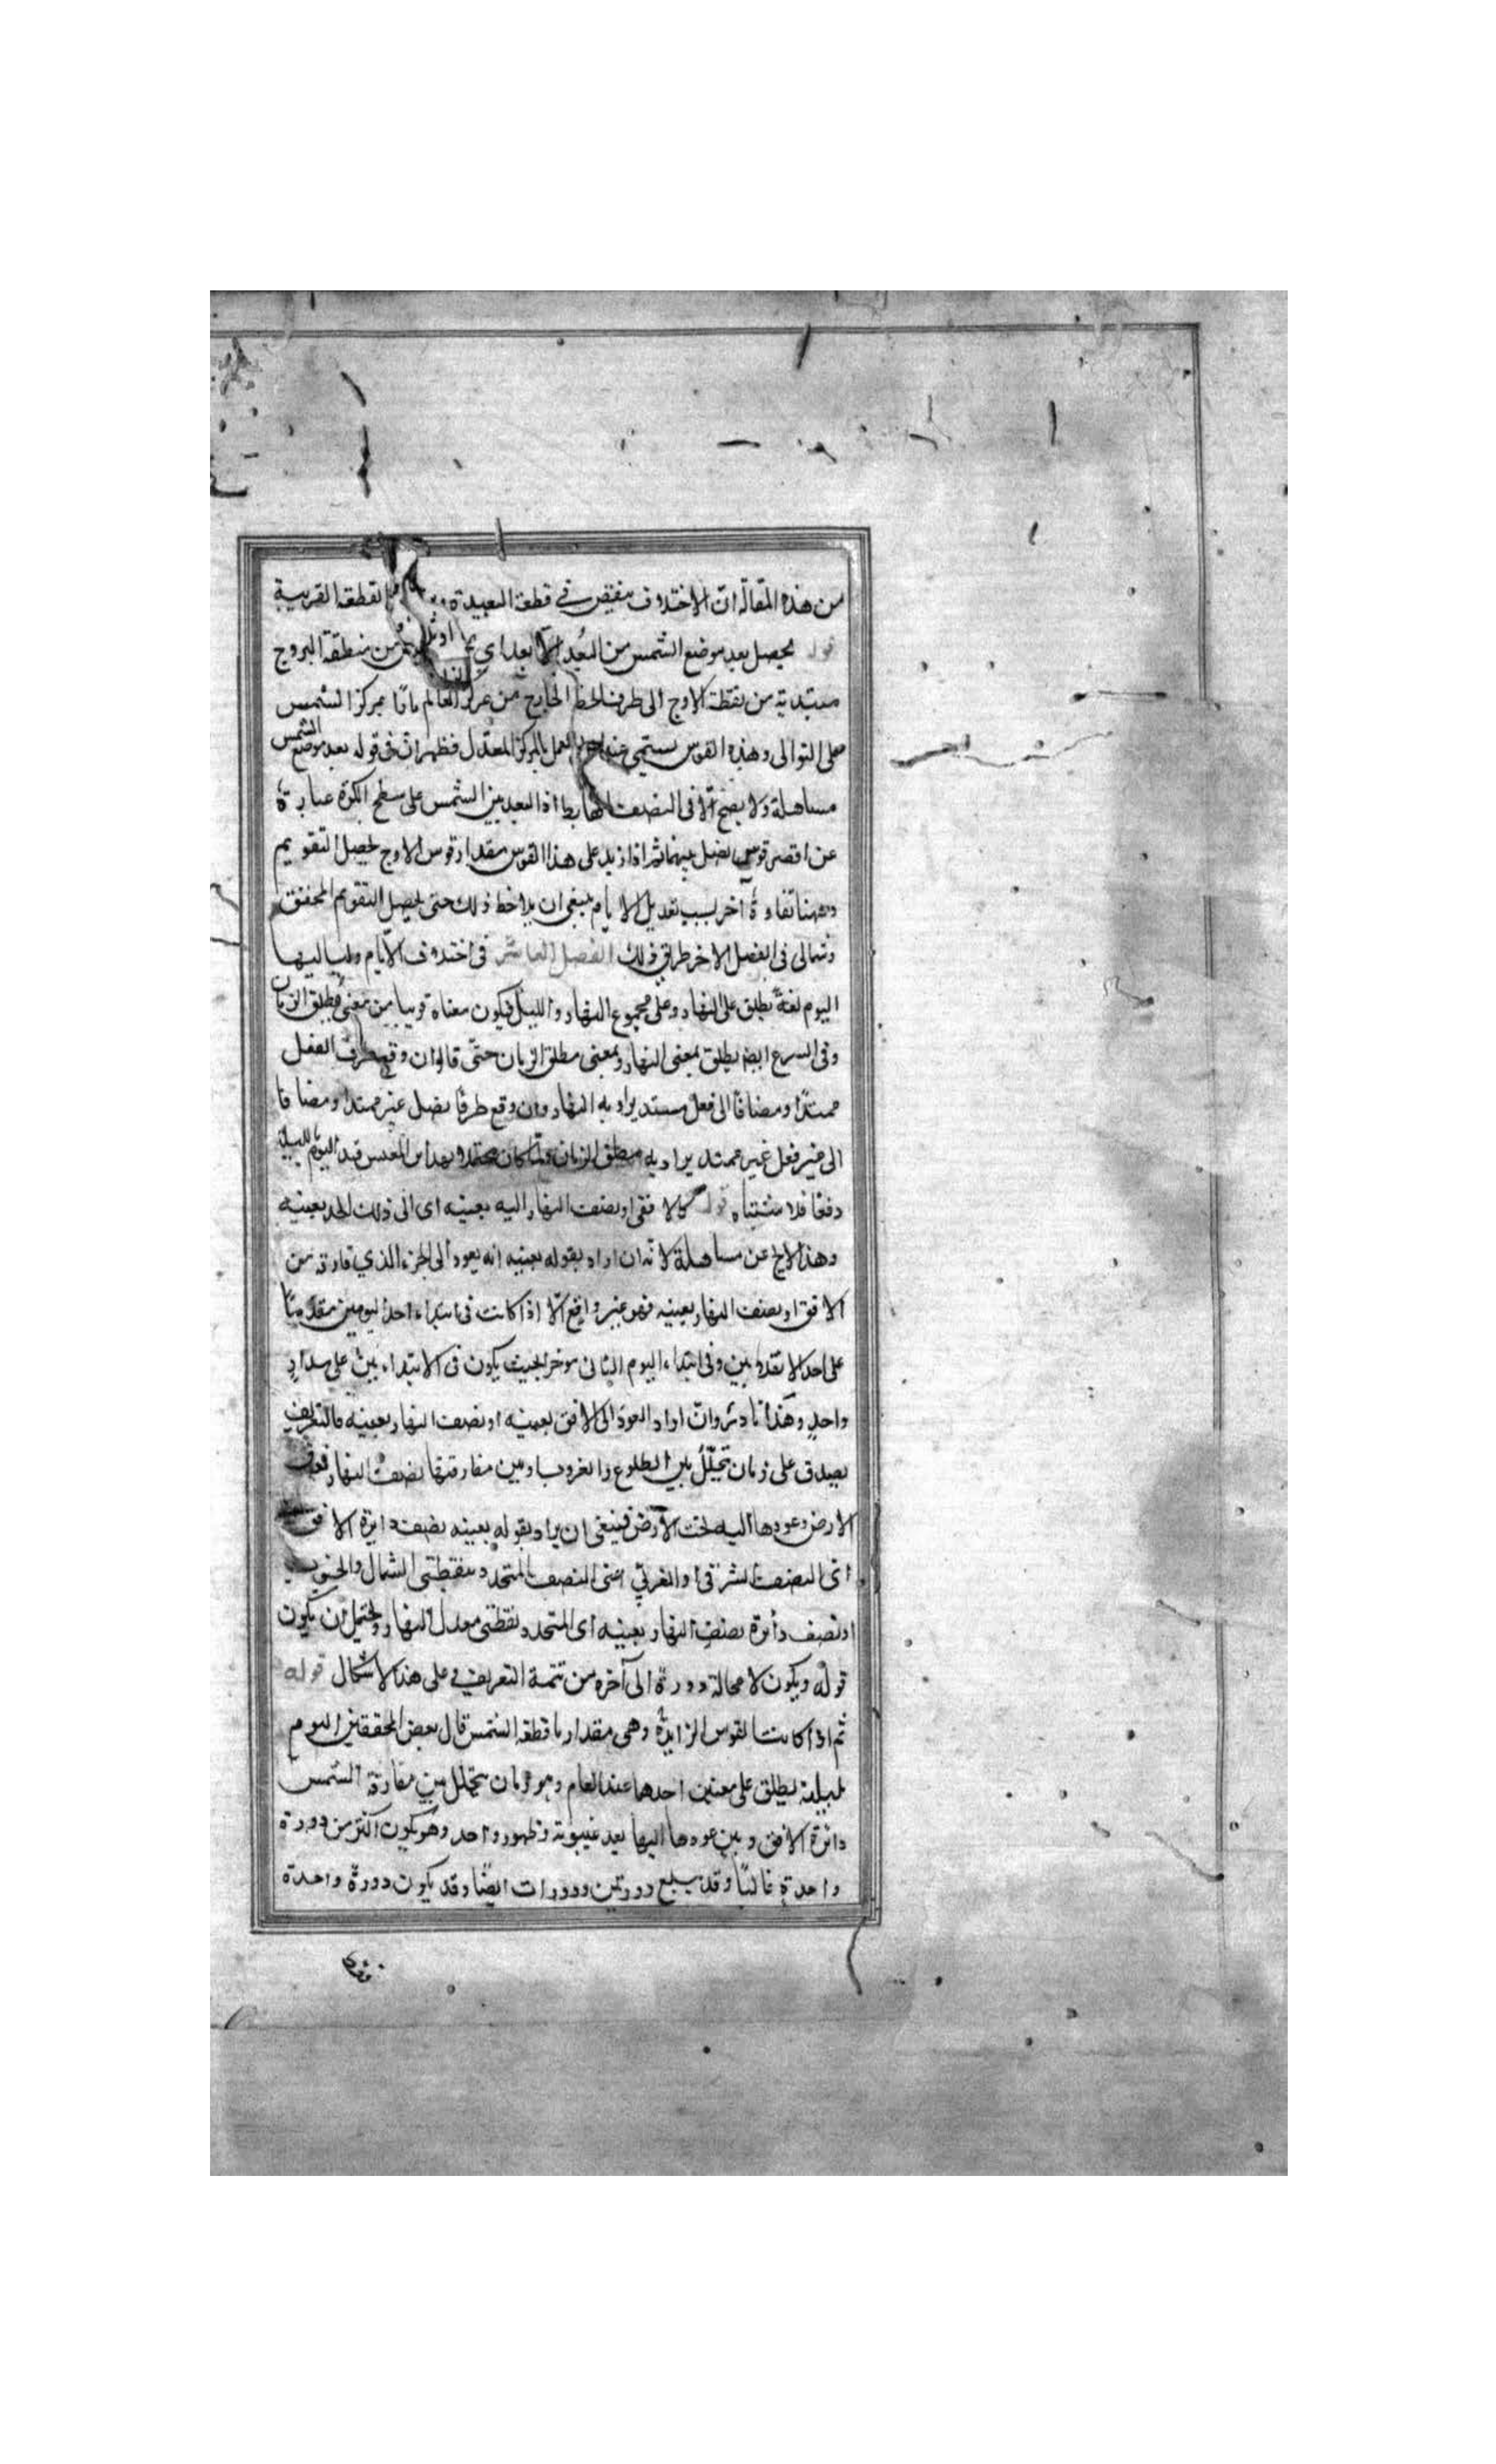 من هذه المقالة ان الاختلاف ينقص في قطعة البعيدة القطعة القريبة
قوله يحصل بعد موضع الشمس من البعد الابعد اي من منطقة البروج
مبتدية من نقطة الاوج الى طرف الخط الخارج من مركز العالم مارّا بمركز الشمس
على التوالى وهذه القوس يسمى عند العمل بالمركز المعدل فظهر ان فى قوله بعد موضع الشمس
مساهلة ولا يصح الّا فى النصف الهابط اذ البعد بين الشمس على سطح الكرة عبارة
عن اقصر قوس يصل بينهما ثم اذا زيد على هذا القوس مقدار قوس الاوج لحصل التقويم
وههنا تفاوة آخر بسبب تعديل الايام ينبغى ان يلاحظ ذلك حتى يحصل التقويم المحقق
وسيأتى فى الفصل الاخر طرايق ذلك الفصل العاشر فى اختلاف الايام ولياليها
اليوم لغة يطلق على النهار وعلى مجموع النهار والليل فيكون معناه قريبا من معنى مطلق الزمان
وفى الشرع ايضا يطلق بمعنى النهار وبمعنى مطلق الزمان حتّى قالوا ان وقع ظرف الفعل
ممتدّا ومضافا الى فعل ممتد يراد به النهار وان وقع ظرفا لفعل غير ممتد او مضافا
الى غير فعل غير ممتد يراد به مطلق الزمان ولما كان قيد اليوم بليلة
دفعا فلا مشتباه قوله كالافق او نصف النهار اليه بعينيه اى الى ذلك الحد بعينيه
وهذا لا يخ عن مساهلة لانه ان اراد بقوله بعينيه انه يعود الى الجزء الذي فارقه من
الافق او نصف النهار بعينيه فهو غير واقع الّا اذا كانت فى ابتداء احد اليومين مقدميّا
على احد الانقلابين وفى ابتداء اليوم الثانى موخر الحيث يكون فى الابتداء ين على مدار
واحد وهذا نادر وان اراد العود الى الافق بعينيه او نصف النهار بعينيه فالتعريف
يصدق على زمان تخلّل بين الطلوع والغروب او بين مفارقتها نصف النهار فوق
الارض وعودها اليه تحت الارض فينبغى ان يراد بقوله بعينه نصف دايرة الافق
اى النصف الشرقى او الغربي اعنى النصف المتحدد بنقطتى الشمال والجنوب
او نصف دائرة نصف النهار بعينيه اى المتحدد بنقطتى معدل النهار ويحتمل ان يكون
قوله ويكون لا محالة دورة الى آخره من تتمة التعريف فى على هذا الاشكال قوله
ثم اذا كانت القوس الزايدة وهى مقدار ما قطعه الشمس قال بعض المحققين اليوم
بليلته يطلق على معنين احدهما عند العام وهو زمان يتخلل بين مفارقة الشمس
دائرة الافق وبين عودها اليها بعد غيبوبة وظهور واحد وهو يكون اكثر من دورة
واحدة غالبا وقد يبلغ دورتين ودورات ايضا وقد يكون دورة واحدة